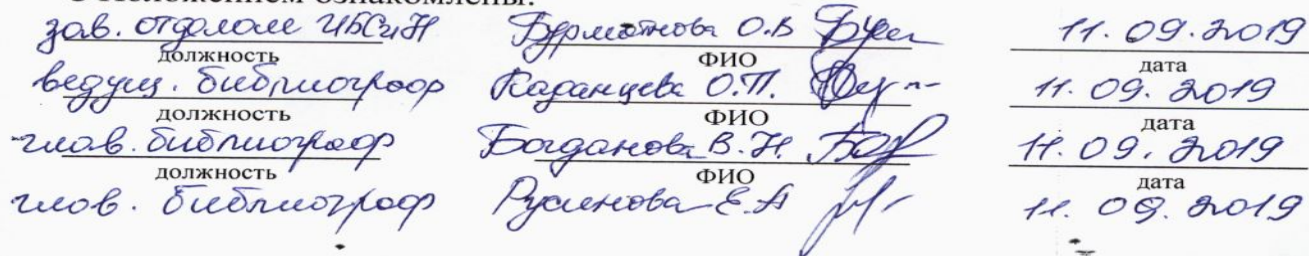 С Положением ознакомлены:
зав. отделом ИБСиН Бурматнова О.В 11.09.2019
должность ФИО дата
ведущ. библиограф Каданцева О.П. 11.09.2019
должность ФИО дата
глав. библиограф Богданова В.Н. 11.09.2019
должность ФИО дата
глав. библиограф Русинова Е.А 11.09.2019